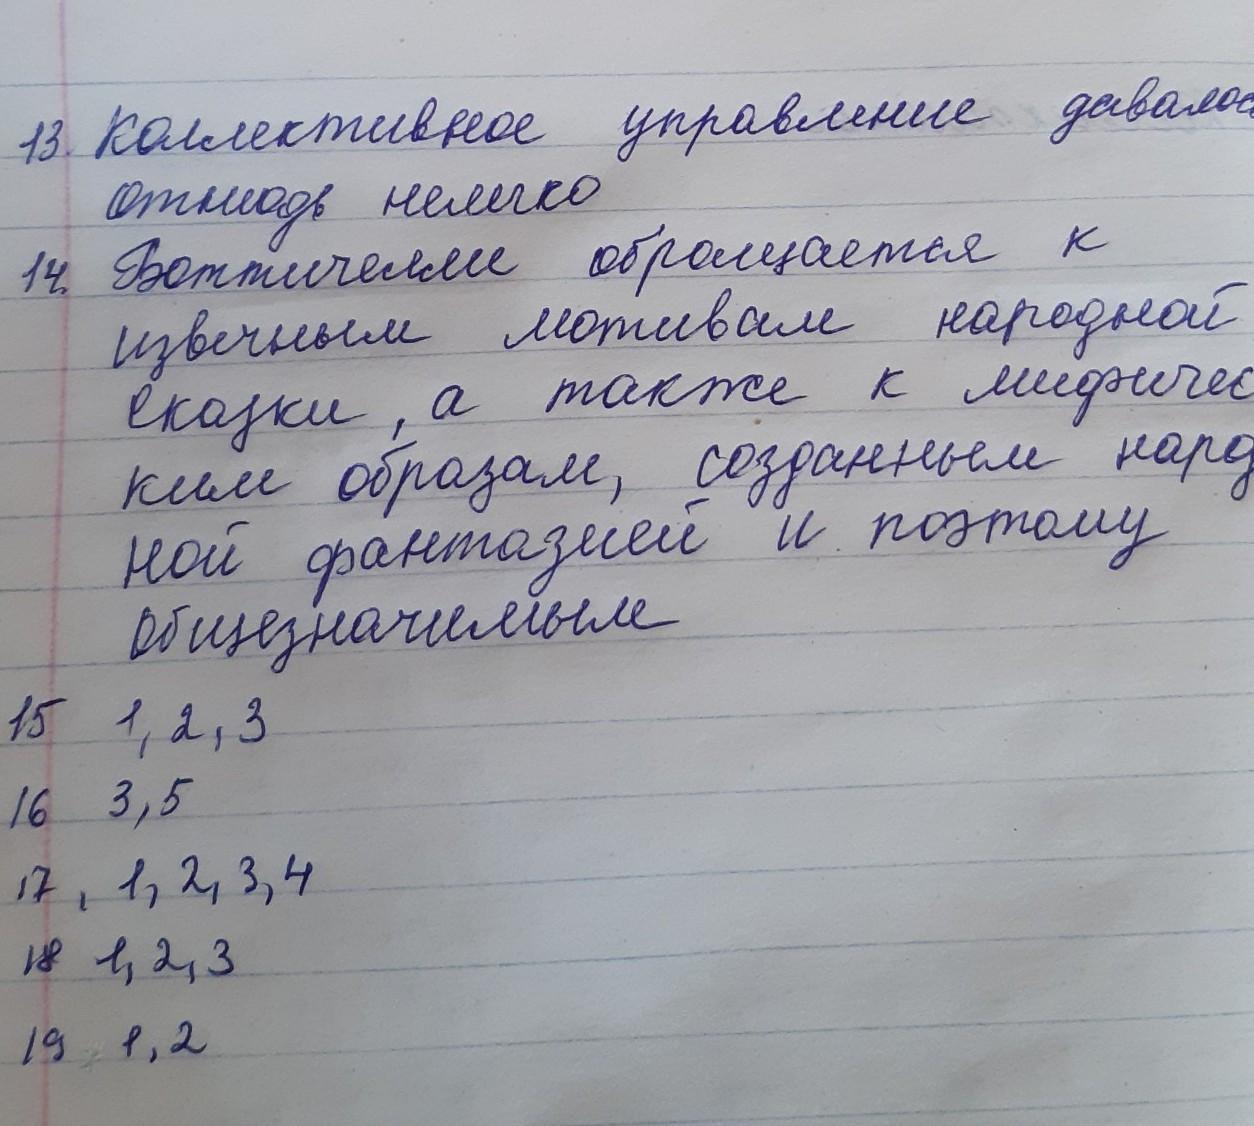 13. Коллективное управление давалос
отнюдь нелегко
14. Боттичелли обращается к
извечным мотивам народной
сказки, а также к мифичес
ким образам, созданным народ
ной фантазией и поэтому
общезначимым
15 1, 2, 3
16 3, 5
17, 1, 2, 3, 4
18 1, 2, 3
19 1, 2